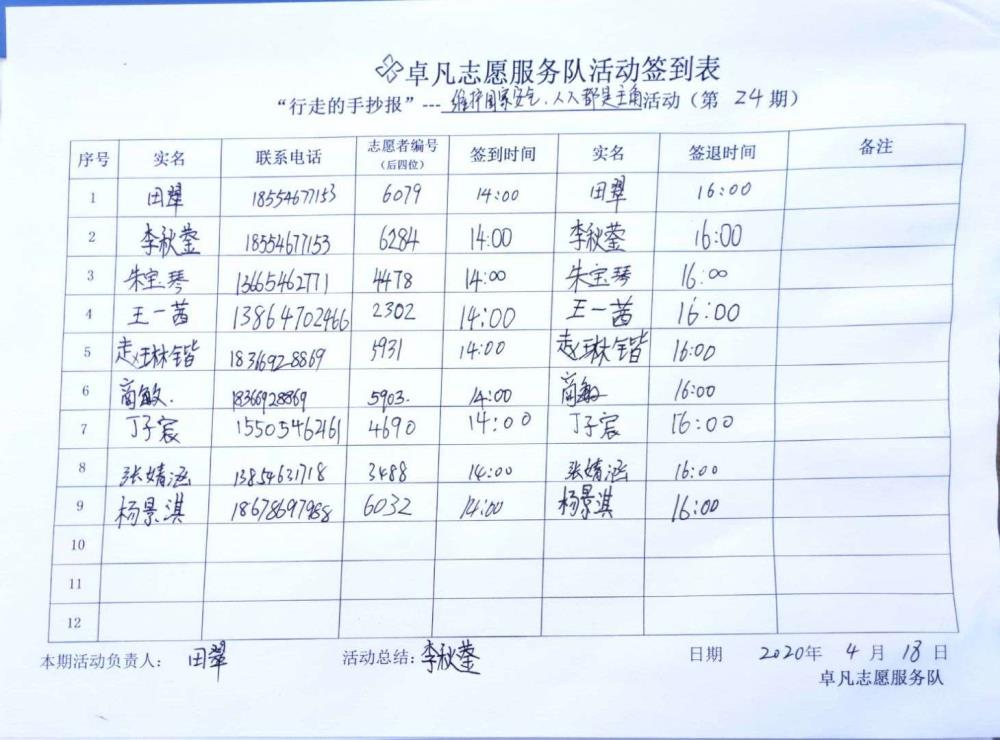 卓凡志愿服务队活动签到表
“行走的手抄报”---维护国家安全、人人都是主角活动（第 24 期）
序号 实名 联系电话 志愿者编号（后四位） 签到时间 实名 签退时间 备注
1 田翠 18554677153 6079 14:00 田翠 16:00
2 李秋蓥 18554677153 6284 14:00 李秋蓥 16:00
3 朱宝琴 13665462771 4478 14:00 朱宝琴 16:00
4 王一茜 13864702466 2302 14:00 王一茜 16:00
5 赵琳锴 18366928869 5931 14:00 赵琳锴 16:00
6 商敏. 18366928869 5903. 14:00 商敏 16:00
7 丁子宸 15505462461 4690 14:00 丁子宸 16:00
8 张婧涵 13854631718 3488 14:00 张婧涵 16:00
9 杨景淇 18678697988 6032 14:00 杨景淇 16:00
10
11
12
本期活动负责人： 田翠 活动总结：李秋蓥 日期 2020年 4 月 18 日
卓凡志愿服务队